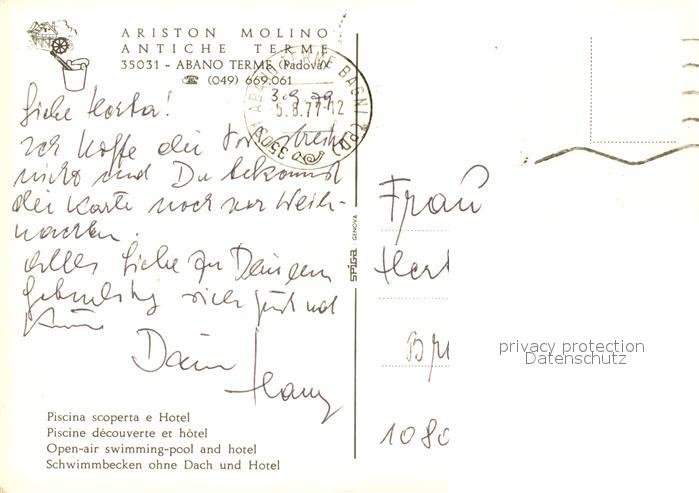 ARISTON MOLINO
ANTICHE TERME
35031 - ABANO TERME (Padova)
☎ (049) 669.061
ABANO TERME BAGNI (PD)
5.8.77-12
35031
Liebe Herta!
Ich hoffe die Post streikt
nicht und Du bekommst
die Karte noch vor Weih-
nachten.
Alles Liebe zu Deinem
Geburtstag viel und
Dein
Hans
SPIGA GENOVA
Frau
Hert
Br
1080
privacy protection
Datenschutz
Piscina scoperta e Hotel
Piscine découverte et hôtel
Open-air swimming-pool and hotel
Schwimmbecken ohne Dach und Hotel